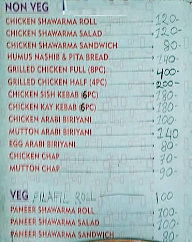 NON VEG
CHICKEN SHAWARMA ROLL 120-
CHICKEN SHAWARMA SALAD 120-
CHICKEN SHAWARMA SANDWICH 80-
HUMUS NASHIB & PITA BREAD 140-
GRILLED CHICKEN FULL (8PC) 400-
GRILLED CHICKEN HALF (4PC) 200-
CHICKEN SISH KEBAB (6PC) 180-
CHICKEN KAY KEBAB (6PC) 180-
CHICKEN ARABI BIRIYANI 100-
MUTTON ARABI BIRIYANI 140
EGG ARABI BIRIYANI 80-
CHICKEN CHAP 70-
MUTTON CHAP 90-
VEG FILAFIL ROLL 100
PANEER SHAWARMA ROLL 100-
PANEER SHAWARMA SALAD 100-
PANEER SHAWARMA SANDWICH 80-